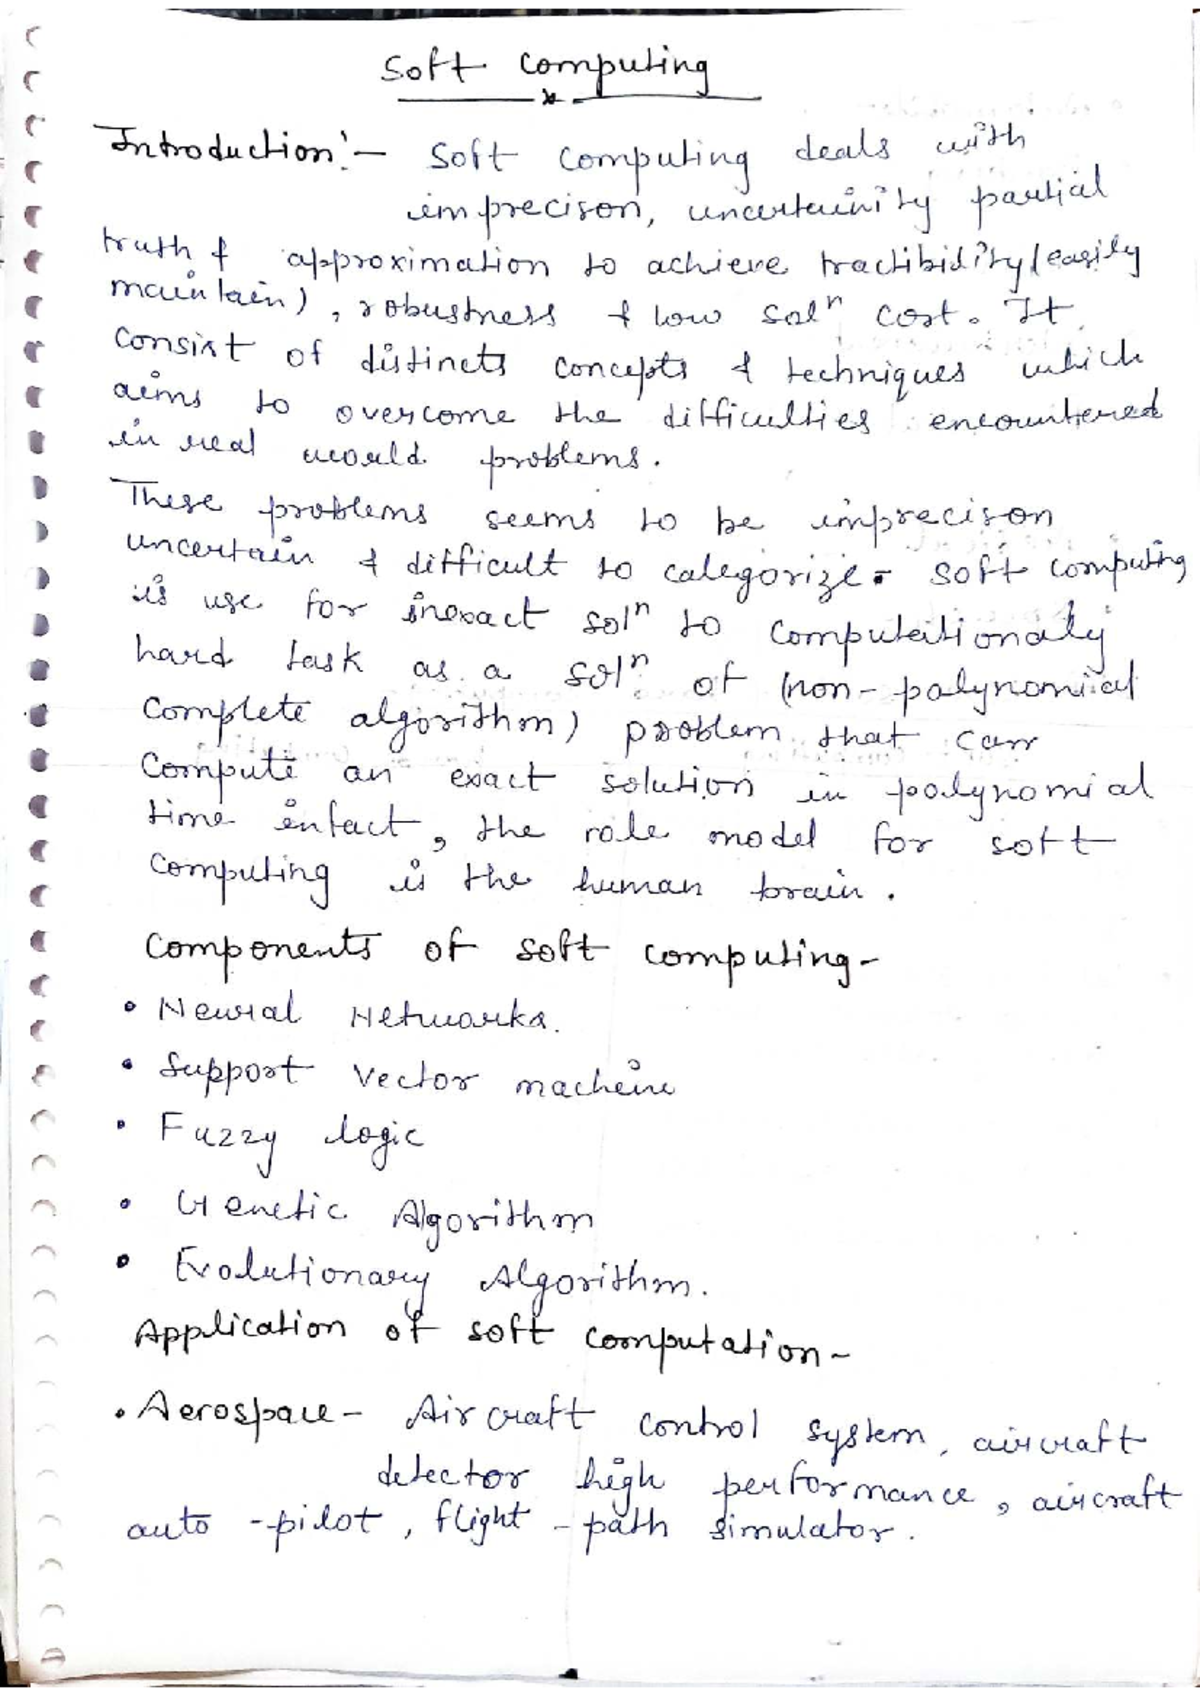 Soft computing
Introduction:- Soft computing deals with
imprecison, uncertainity partial
truth & approximation to achieve tractibidity (easily
maintain), robustness & low solⁿ cost. It
consist of distincts concepts & techniques which
aims to overcome the difficulties encountered
in real would problems.
These problems seems to be imprecison
uncertain & difficult to categorize. Soft computing
is use for inexact solⁿ to computationaly
hard task as a solⁿ of (non-polynomial
complete algorithm) problem that can
compute an exact solution in polynomial
time infact, the role model for soft
computing is the human brain.
Components of soft computing-
• Neural Networks.
• Support Vector machine
• Fuzzy logic
• Genetic Algorithm
• Evolutionary Algorithm.
Application of soft computation-
• Aerospace- Aircraft control system, aircraft
detector high performance, aircraft
auto-pilot, flight-path simulator.